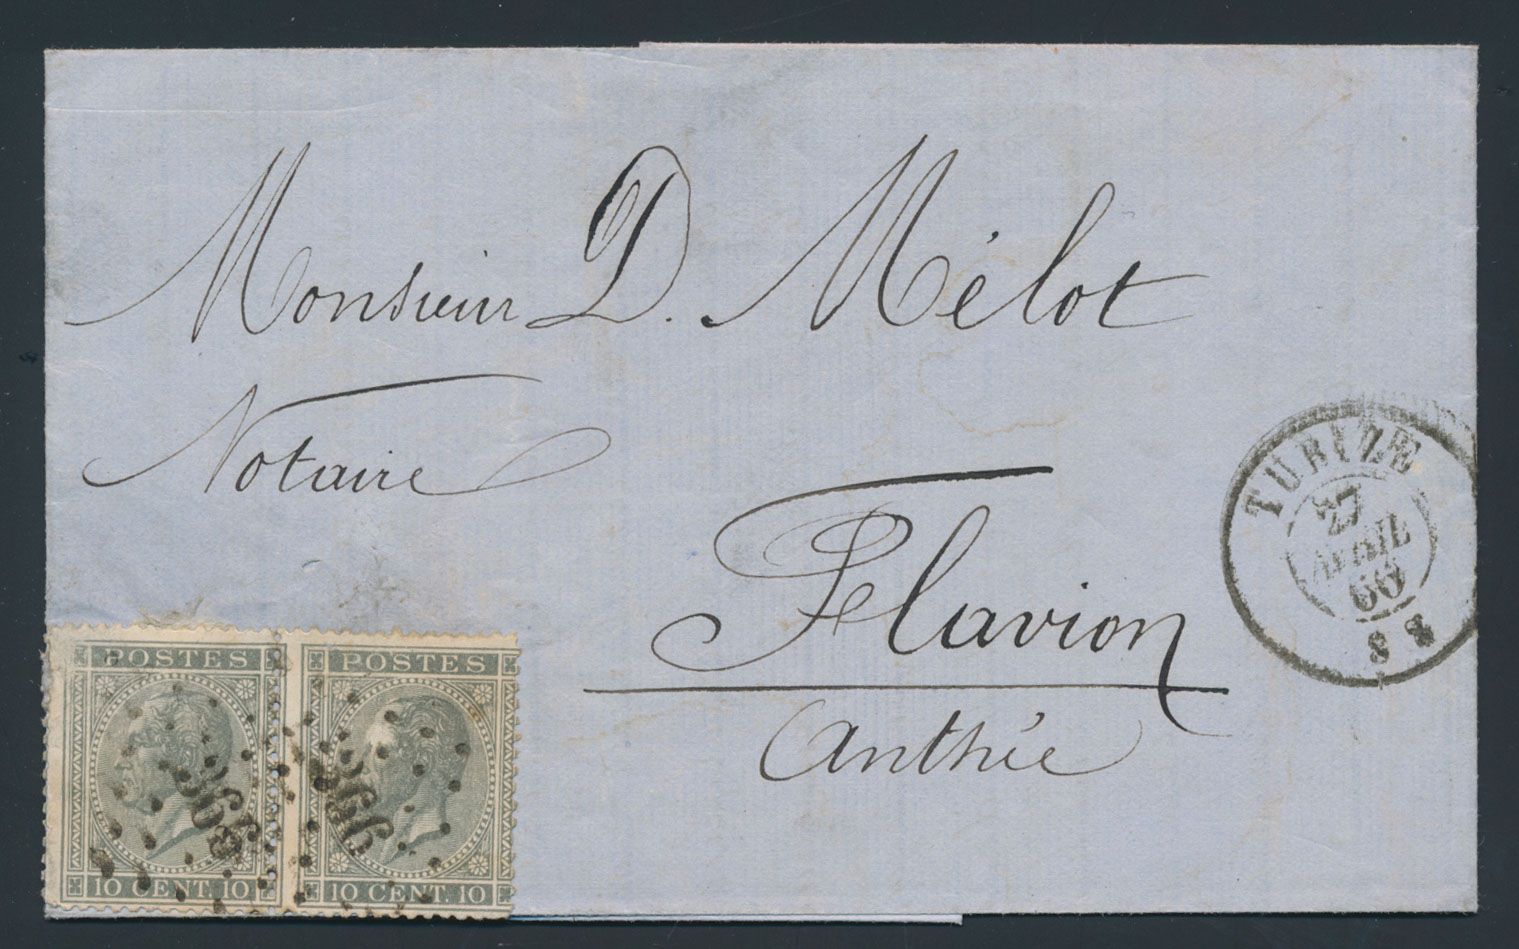 Monsieur D. Mélot
Notaire
Flavion
Anthée
TUBIZE
27
AVRIL
66
8 S
POSTES
366
10 CENT. 10
POSTES
366
10 CENT. 10